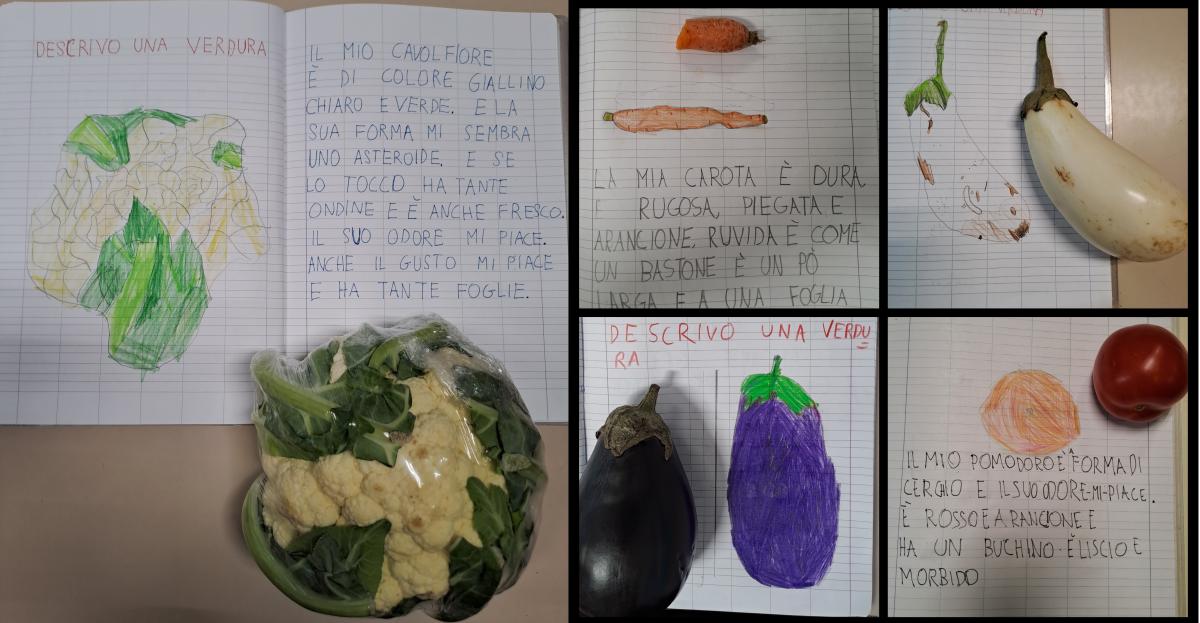 DESCRIVO UNA VERDURA
IL MIO CAVOLFIORE
È DI COLORE GIALLINO
CHIARO E VERDE. E LA
SUA FORMA MI SEMBRA
UNO ASTEROIDE, E SE
LO TOCCO HA TANTE
ONDINE E È ANCHE FRESCO.
IL SUO ODORE MI PIACE.
ANCHE IL GUSTO MI PIACE
E HA TANTE FOGLIE.
LA MIA CAROTA È DURA
E RUGOSA, PIEGATA E
ARANCIONE, RUVIDA È COME
UN BASTONE È UN PÒ
LARGA E A UNA FOGLIA
DESCRIVO UNA VERDU
RA
IL MIO POMODORO È A FORMA DI
CERCHIO E IL SUO ODORE-MI-PIACE.
È ROSSO E ARANCIONE E
HA UN BUCHINO. È LISCIO E
MORBIDO